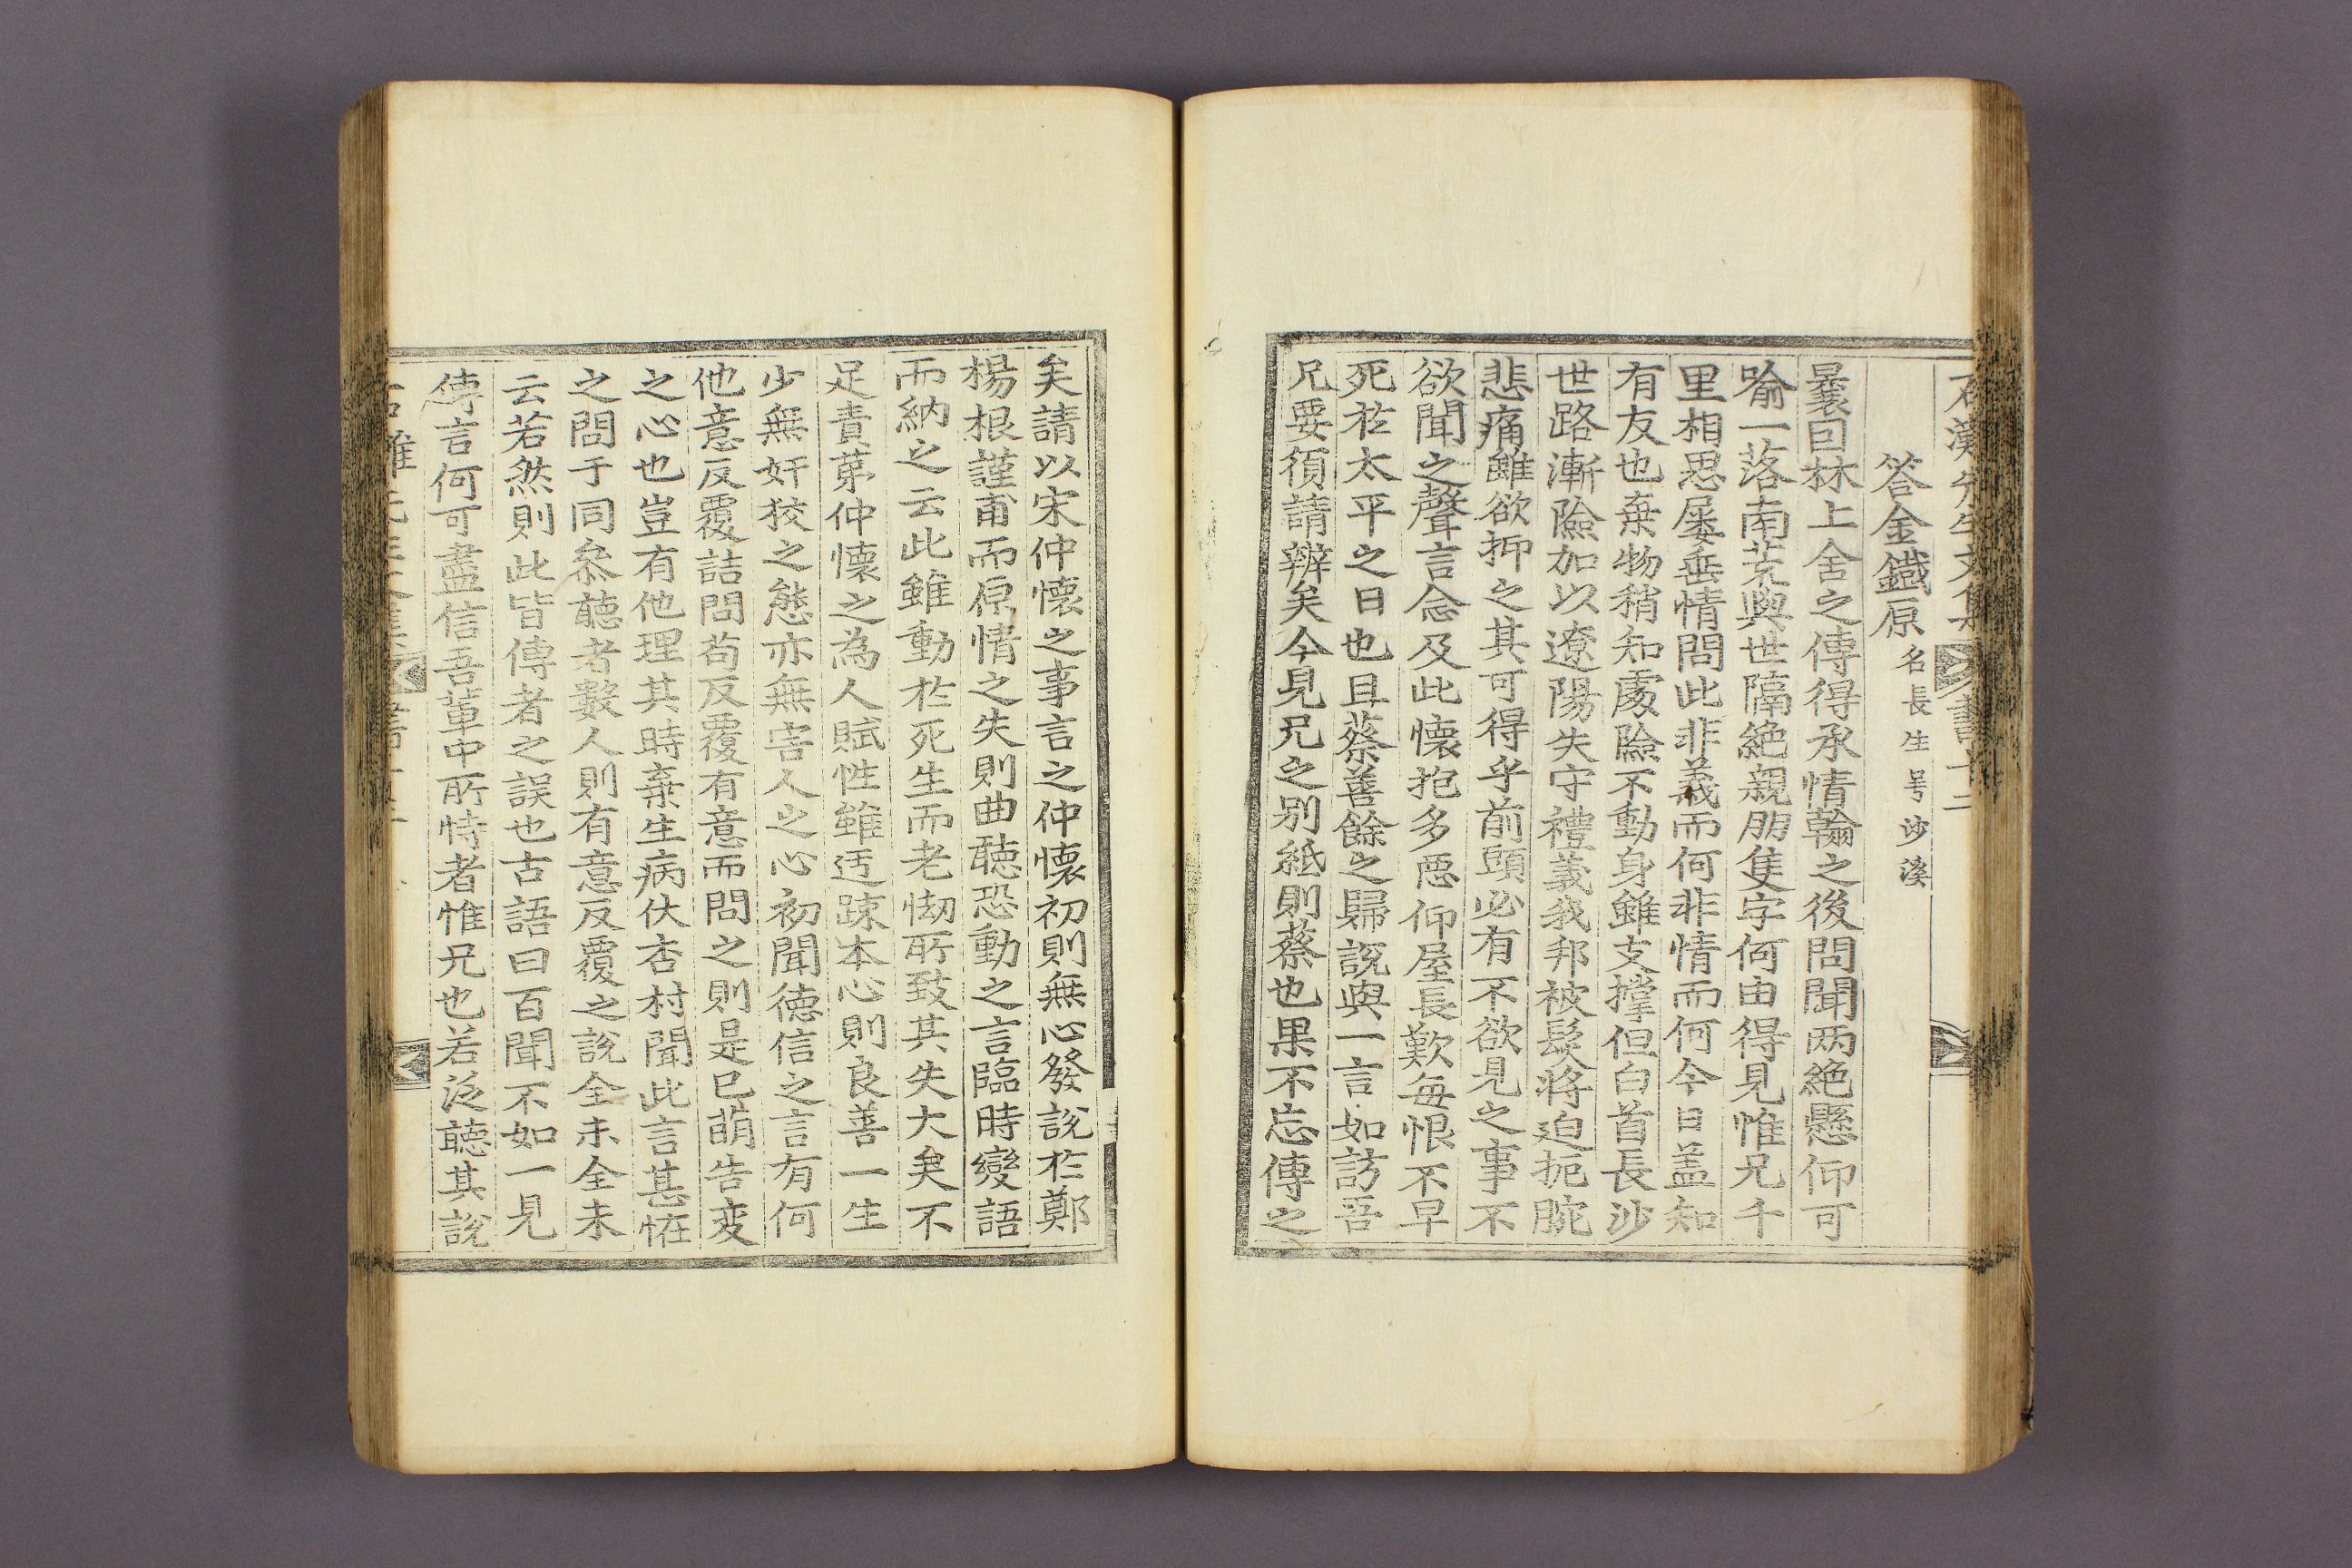 答金鐵原 名長生号沙溪
曩囙林上舍之傳得承情翰之後問聞两絶懸仰可
喻一落南荒與世隔絶親朋隻字何由得見惟兄千
里相思屡垂情問此非義而何非情而何今日盖知
有友也棄物稍知處險不動身雖支撑但白首長沙
世路漸險加以遼陽失守禮義我邦被髮將迫扼腕
悲痛雖欲抑之其可得乎前頭必有不欲見之事不
欲聞之聲言念及此懷抱多惡仰屋長歎每恨不早
死扵太平之日也且蔡善餘之歸說與一言如訪吾
兄要須請辨矣今見兄之别紙則蔡也果不忘傳之
矣請以宋仲懷之事言之仲懷初則無心發說扵鄭
楊根謹甫而原情之失則曲聽恐動之言臨時變語
而納之云此雖動扵死生而老㤼所致其失大矣不
足責苐仲懷之為人賦性雖迂踈本心則良善一生
少無奸狡之態亦無害人之心初聞德信之言有何
他意反覆詰問苟反覆有意而問之則是已萌告变
之心也豈有他理其時棄生病伏杏村聞此言甚恠
之問于同叅聽者數人則有意反覆之說全未全未
云若然則此皆傳者之誤也古語曰百聞不如一見
傳言何可盡信吾輩中所恃者惟兄也若泛聽其說